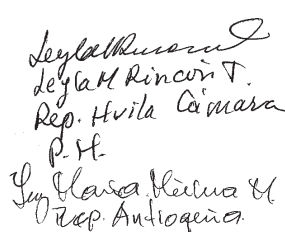 Leyla M Rincón T.
Rep. Huila Cámara
P.H.
Luz María Múnera M
Rep. Antioqueña